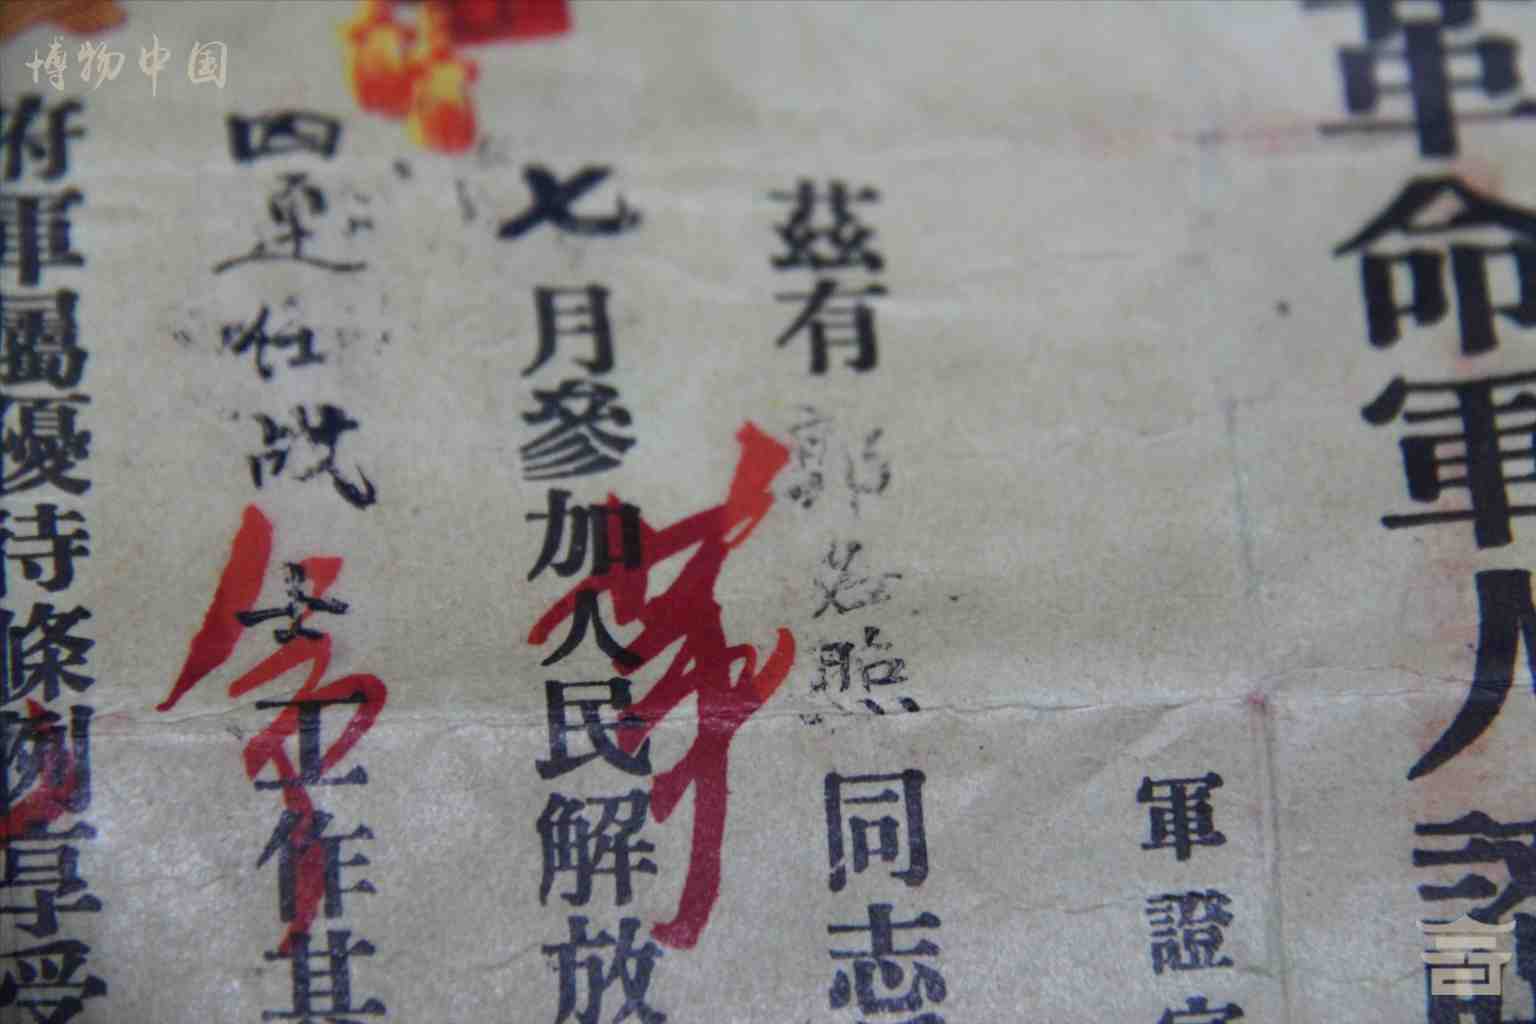 博物中国
革命軍人證
軍證字
茲有郭芝照同志
七月參加人民解放
四連任战士工作其
府軍屬優待條例享受
革命